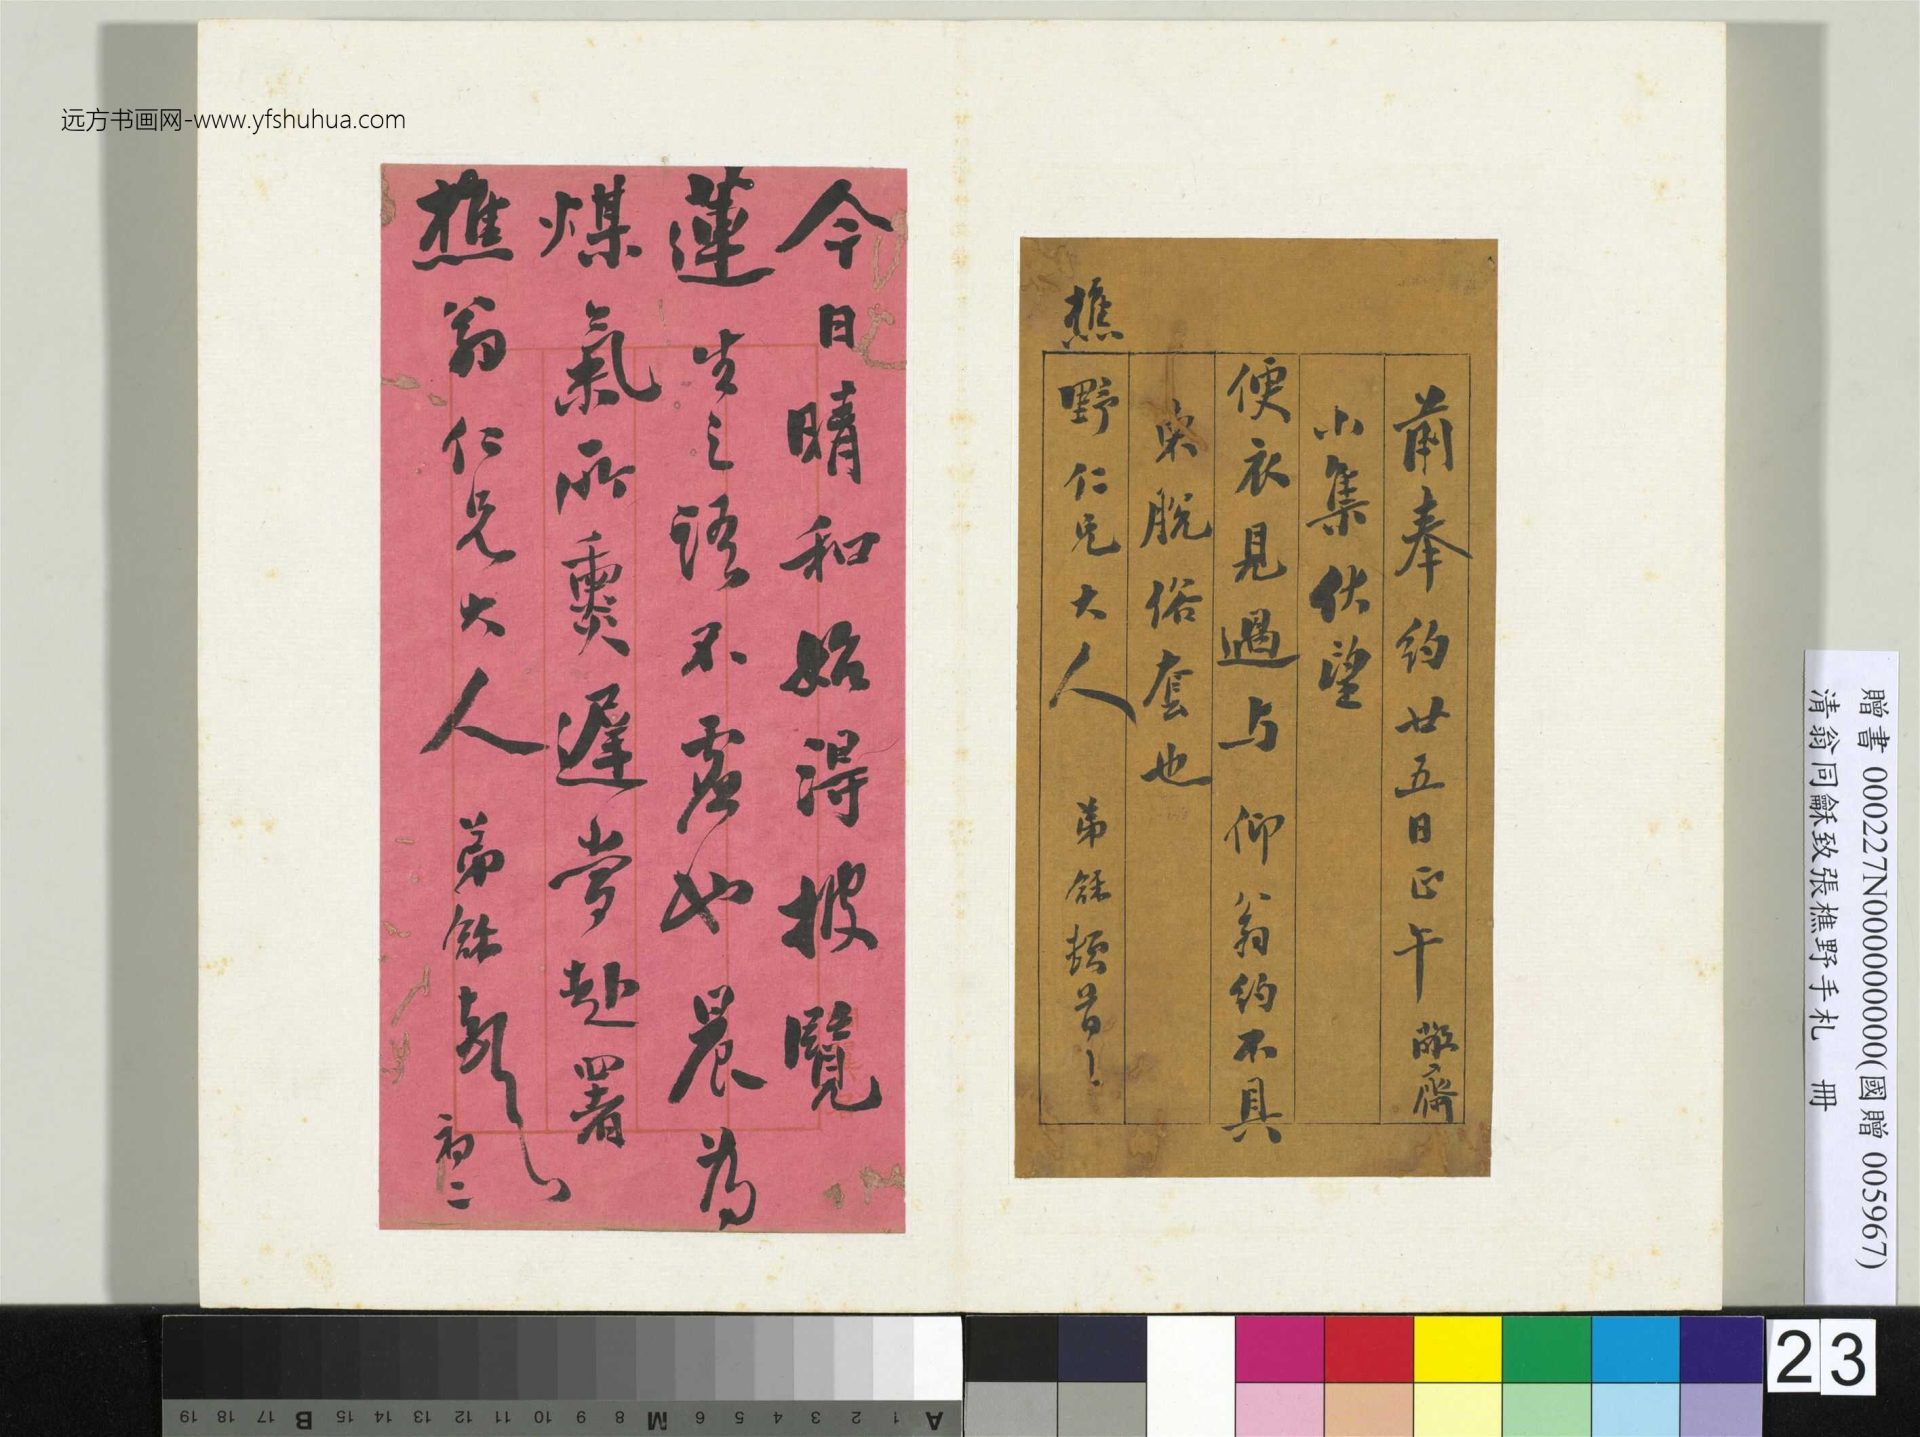 远方书画网-www.yfshuhua.com
前奉约廿五日正午敝齋
小集伏望
便衣見過与仰翁约不具
柬脫俗套也
樵野仁兄大人 弟龢頓首
今日晴和始得披覽
蓮生之語不虛也晨為
煤氣所熏遲當赴署
樵翁仁兄大人 弟龢頓首 初二
贈書 000227N000000000(國贈 005967)
清翁同龢致張樵野手札 冊
23
A 1 2 3 4 5 6 M 8 9 10 11 12 13 14 15 B 17 18 19